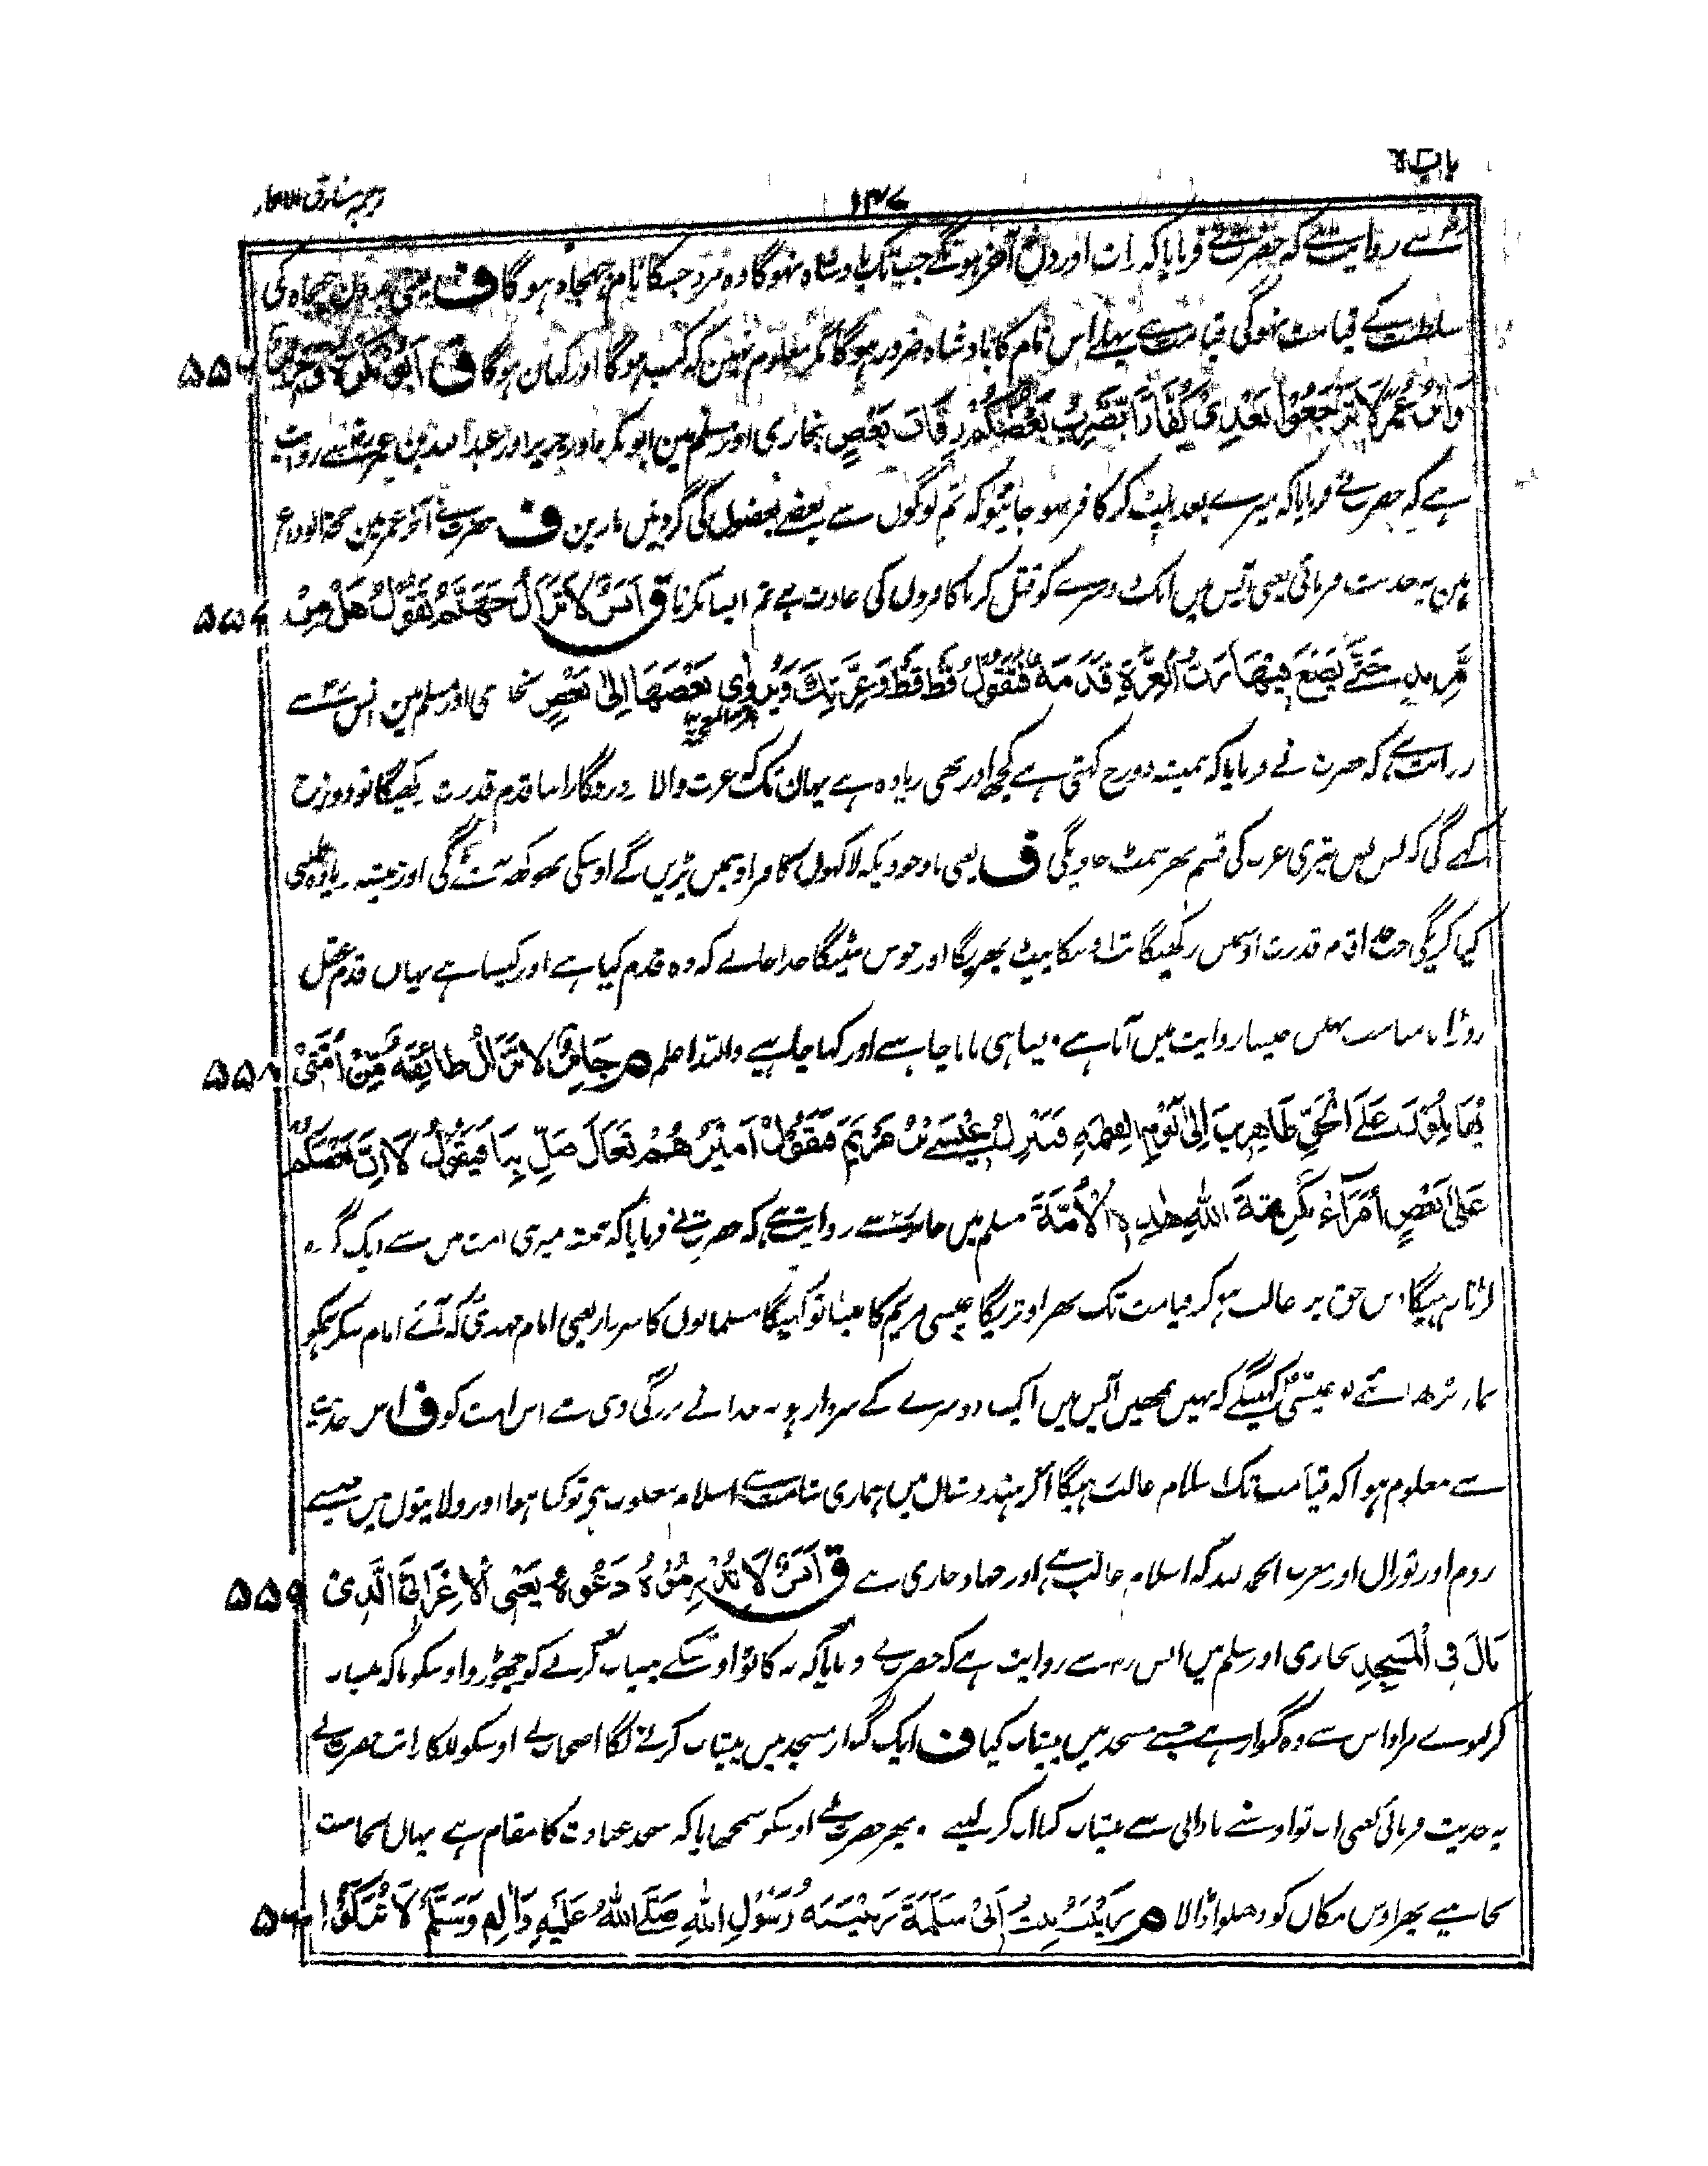 باب ۷
۱۴۷
سے روایت ہے کہ حضرت نے فرمایا کہ رات اور دن آخر ہونگے جبتک بادشاہ نہوگا وہ مرد جسکا نام جہجاہ ہوگا ف یعنی بدون جہجاہ کی
سلطنت کے قیامت نہوگی قیامت سے پہلے اس نام کا بادشاہ ضرور ہوگا مگر معلوم نہین کہ کب ہوگا اور کہان ہوگا ق
وَابْنُ عُمَرَ لَا تَرْجِعُوْا بَعْدِیْ کُفَّارًا یَّضْرِبُ بَعْضُکُمْ رِقَابَ بَعْضٍ بخاری اور مسلم مین ابو بکرہ اور جریر اور عبداللہ بن عمر سے روایت
ہے کہ حضرت نے فرمایا کہ میرے بعد پلٹ کر کافر نہو جائیو کہ تم لوگوں سے بعضے بعضوں کی گردنیں مارین ف حضرت نے آخر عمر مین حجۃ الوداع
مین یہ حدیث فرمائی یعنی آپس میں ایک دوسرے کو قتل کرنا کافروں کی عادت ہے تم ایسا نکرنا ق اَنَسٌ لَا تَزَالُ جَهَنَّمُ تَقُوْلُ هَلْ مِنْ
۵۵۷
مَّزِیدٍ حَتّٰی یَضَعَ فِیْهَا رَبُّ الْعِزَّةِ قَدَمَهٗ فَتَقُوْلُ قَطْ قَطْ وَعِزَّتِكَ وَیُزْوٰی بَعْضُهَا اِلٰی بَعْضٍ بخاری اور مسلم مین انس سے
روایت ہے کہ حضرت نے فرمایا کہ ہمیشہ دوزخ کہتی ہے کچھ اور بھی زیادہ ہے یہان تک کہ عزت والا پروردگار اپنا قدم قدرت رکھیگا تو دوزخ
کہے گی کہ بس بس تیری عزت کی قسم پھر سمٹ جاویگی ف یعنی باوجودیکہ لاکھوں کافر اوسمیں پڑیں گے اوسکی بھوکھ نہ مٹے گی اور ہمیشہ زیادہ طلبی
کیا کریگی جب خدا قدم قدرت اوسمیں رکھیگا تب اوسکا پیٹ بھریگا اور جوش مٹیگا خدا جانے کہ وہ قدم کیا ہے اور کیسا ہے یہاں قدم عقل
دوڑانا مناسب نہیں جیسا روایت میں آیا ہے ویسا ہی ماننا چاہیے اور کہا چاہیے واللہ اعلم م جَابِرٌ لَا تَزَالُ طَائِفَةٌ مِّنْ اُمَّتِیْ
۵۵۸
یُقَاتِلُوْنَ عَلَی الْحَقِّ ظَاهِرِیْنَ اِلٰی یَوْمِ الْقِیٰمَةِ فَیَنْزِلُ عِیْسَی بْنُ مَرْیَمَ فَیَقُوْلُ اَمِیْرُهُمْ تَعَالَ صَلِّ بِنَا فَیَقُوْلُ لَا اِنَّ بَعْضَکُمْ
عَلٰی بَعْضٍ اُمَرَآءُ تَکْرِمَةَ اللّٰهِ هٰذِهِ الْاُمَّةَ مسلم میں جابر سے روایت ہے کہ حضرت نے فرمایا کہ ہمیشہ میری امت میں سے ایک گروہ
لڑتا رہیگا دین حق پر غالب ہو کر قیامت تک پھر اوتریگا عیسی مریم کا بیٹا تو کہیگا مسلمانوں کا سردار یعنی امام مہدی کہ آئیے امام بنکر ہمکو
نماز پڑھائیے تو عیسی کہینگے کہ نہیں تمھیں آپس میں ایک دوسرے کے سردار ہو یہ خدا نے بزرگی دی ہے اس امت کو ف اس حدیث
سے معلوم ہوا کہ قیامت تک اسلام غالب رہیگا اگر ہندوستان میں ہماری شامت سے اسلام مغلوب ہے تو کیا ہوا اور ولایتوں میں جیسے
روم اور توران اور مغرب الحمد للہ کہ اسلام غالب ہے اور جہاد جاری ہے ق اَنَسٌ لَا تُزْرِمُوْهُ دَعُوْهُ یَعْنِی الْاَعْرَابِیَّ الَّذِیْ
۵۵۹
بَالَ فِی الْمَسْجِدِ بخاری اور مسلم میں انس رض سے روایت ہے کہ حضرت نے فرمایا کہ نہ کاٹو اوسکے پیشاب کرنے کو چھوڑ دو اوسکو تاکہ پیشاب
کرلیوے مراد اس سے وہ گنوار ہے جسنے مسجد میں پیشاب کیا ف ایک گنوار مسجد میں پیشاب کرنے لگا اصحاب نے اوسکو للکارا تب حضرت نے
یہ حدیث فرمائی یعنی اب تو اوسنے نادانی سے پیشاب کیا اب کرلینے دو پھر حضرت نے اوسکو سمجھایا کہ مسجد عبادت کا مقام ہے یہاں نجاست
نچاہیے پھر اوس مکان کو دھلوا ڈالا م زَیْنَبُ بِنْتُ اَبِیْ سَلَمَةَ رَبِیْبَةُ رَسُوْلِ اللّٰهِ صَلَّی اللّٰهُ عَلَیْهِ وَاٰلِهٖ وَسَلَّمَ لَا تُزَکُّوْا